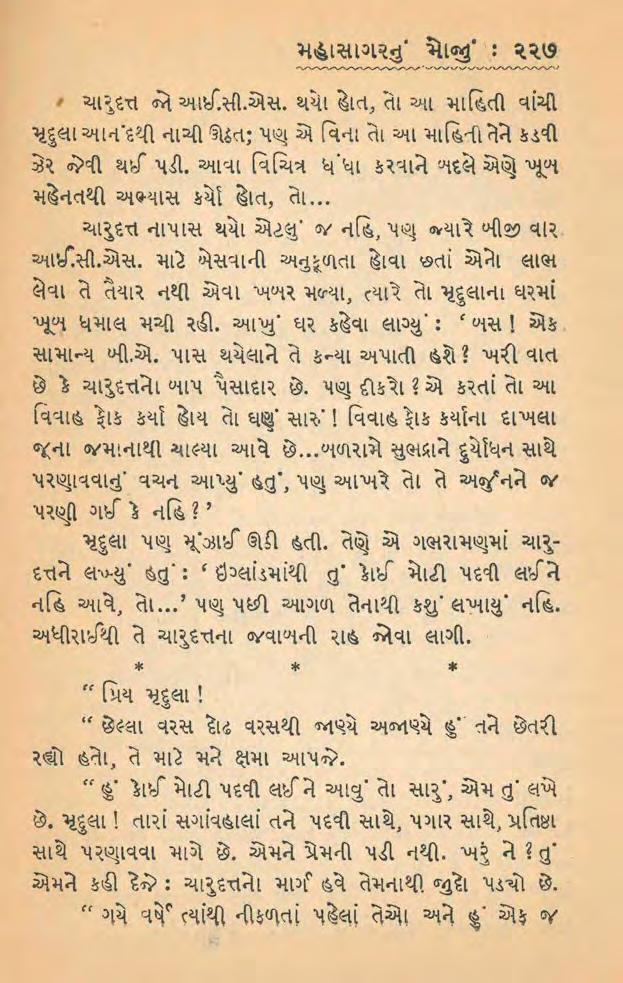 મહાસાગરનું મોજું : ૨૨૭
ચારુદત્ત જો આઈ.સી.એસ. થયો હોત, તો આ માહિતી વાંચી
મૃદુલા આનંદથી નાચી ઊઠત; પણ એ વિના તો આ માહિતી તેને કડવી
ઝેર જેવી થઈ પડી. આવા વિચિત્ર ધંધા કરવાને બદલે એણે ખૂબ
મહેનતથી અભ્યાસ કર્યો હોત, તો...
ચારુદત્ત નાપાસ થયો એટલું જ નહિ, પણ જ્યારે બીજી વાર
આઈ.સી.એસ. માટે બેસવાની અનુકૂળતા હોવા છતાં એનો લાભ
લેવા તે તૈયાર નથી એવા ખબર મળ્યા, ત્યારે તો મૃદુલાના ઘરમાં
ખૂબ ધમાલ મચી રહી. આખું ઘર કહેવા લાગ્યું : ‘ બસ ! એક
સામાન્ય બી.એ. પાસ થયેલાને તે કન્યા અપાતી હશે ? ખરી વાત
છે કે ચારુદત્તનો બાપ પૈસાદાર છે. પણ દીકરો ? એ કરતાં તો આ
વિવાહ ફોક કર્યા હોય તો ઘણું સારું ! વિવાહ ફોક કર્યાના દાખલા
જૂના જમાનાથી ચાલ્યા આવે છે...બળરામે સુભદ્રાને દુર્યોધન સાથે
પરણાવવાનું વચન આપ્યું હતું, પણ આખરે તો તે અર્જુનને જ
પરણી ગઈ કે નહિ ? ’
મૃદુલા પણ મૂંઝાઈ ઊઠી હતી. તેણે એ ગભરામણમાં ચારુ-
દત્તને લખ્યું હતું : ‘ ઇંગ્લાંડમાંથી તું કોઈ મોટી પદવી લઈને
નહિ આવે, તો...’ પણ પછી આગળ તેનાથી કશું લખાયું નહિ.
અધીરાઈથી તે ચારુદત્તના જવાબની રાહ જોવા લાગી.
* * *
“ પ્રિય મૃદુલા !
“ છેલ્લા વરસ દોઢ વરસથી જાણ્યે અજાણ્યે હું તને છેતરી
રહ્યો હતો, તે માટે મને ક્ષમા આપજે.
“ હું કોઈ મોટી પદવી લઈને આવું તો સારું, એમ તું લખે
છે. મૃદુલા ! તારાં સગાંવહાલાં તને પદવી સાથે, પગાર સાથે, પ્રતિષ્ઠા
સાથે પરણાવવા માગે છે. એમને પ્રેમની પડી નથી. ખરું ને ? તું
એમને કહી દેજે : ચારુદત્તનો માર્ગ હવે તેમનાથી જુદો પડ્યો છે.
“ ગયે વર્ષે ત્યાંથી નીકળતાં પહેલાં તેઓ અને હું એક જ